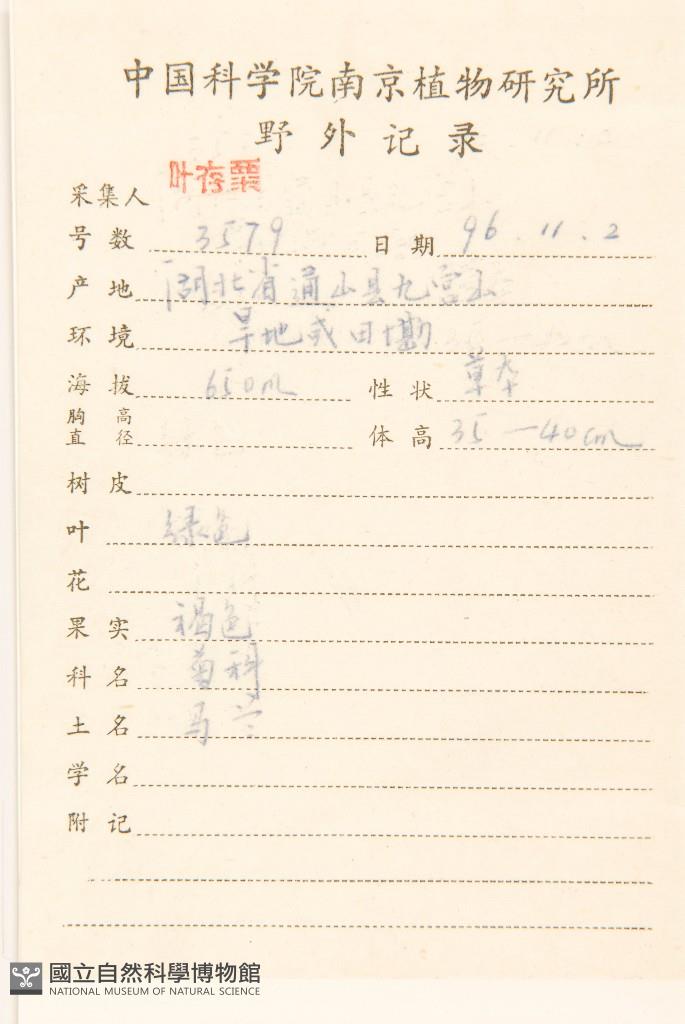 中国科学院南京植物研究所
野外记录
采集人 叶存粟
号数 3579 日期 96.11.2
产地 湖北省通山县九宫山
环境 旱地或田墈
海拔 650m 性状 草本
胸高直径 体高 35—40cm
树皮
叶 绿色
花
果实 褐色
科名 菊科
土名 马兰
学名
附记
國立自然科學博物館
NATIONAL MUSEUM OF NATURAL SCIENCE